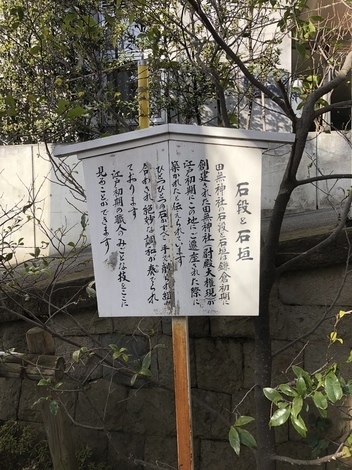 石段と石垣
田無神社の石段と石垣は鎌倉初期に
創建された田無神社(尉殿大権現)が
江戸初期にこの地にご遷座された際に
築かれたと伝えられています
ひとつひとつの石がすべて手で削られ組
合わされ絶妙な調和が奏でられ
ております
江戸初期の職人のみごとな技をここに
見ることができます